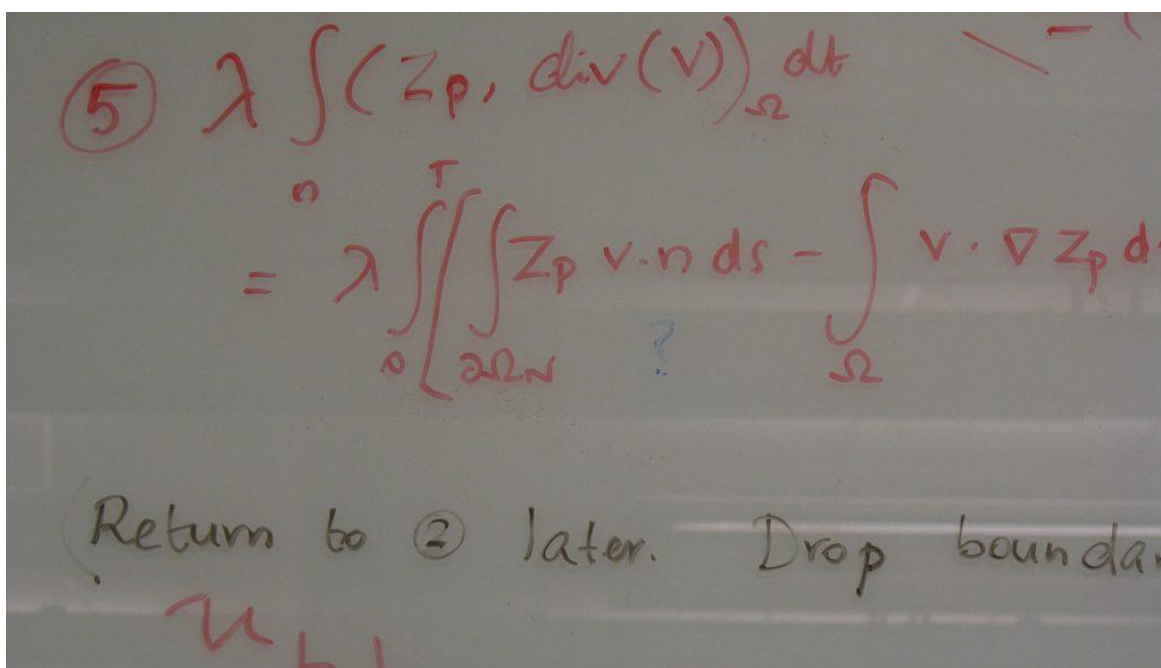 ⑤ λ ∫ ( Zp, div(v) )Ω dt
0 T
= λ ∫ [ ∫ Zp v·n ds - ∫ v·∇ Zp d
0 ∂ΩN ? Ω
Return to ② later. Drop boundar